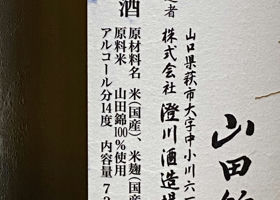 山田
者
山口県萩市大字中小川六一
株式会社 澄川酒造場
酒
原材料名 米(国産)、米麹(国産
原料米 山田錦100%使用
アルコール分14度 内容量7